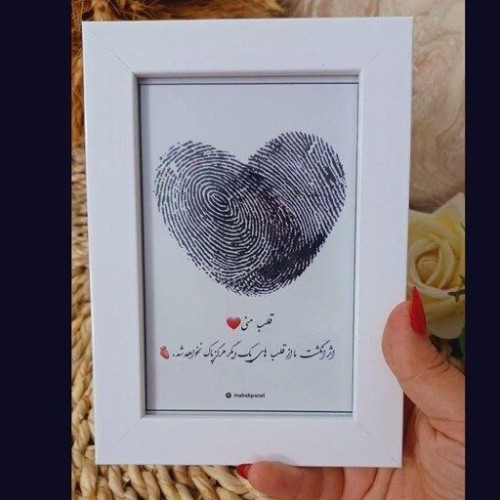 قلب منی❤️
اثر انگشت ما از قلب های یک دیگر هرگز پاک نخواهد شد.🫀
mahakpanel